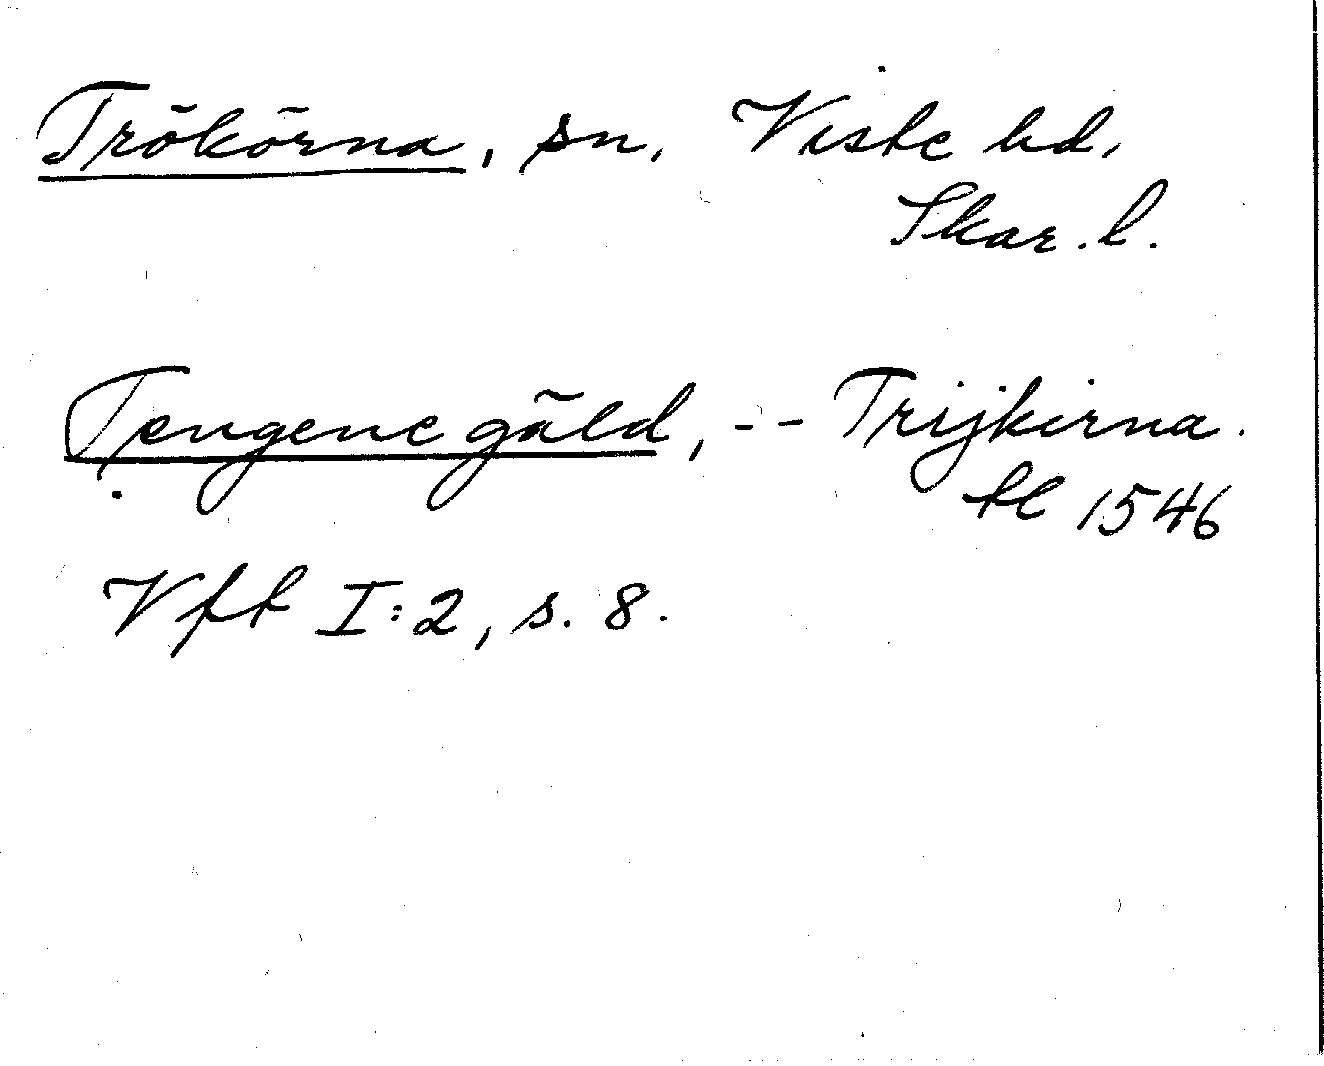 Trökörna, sn, Viste hd,
Skar. l.
Tengene gäld, -- Trijkirna.
tl 1546
Vft I:2, s. 8.